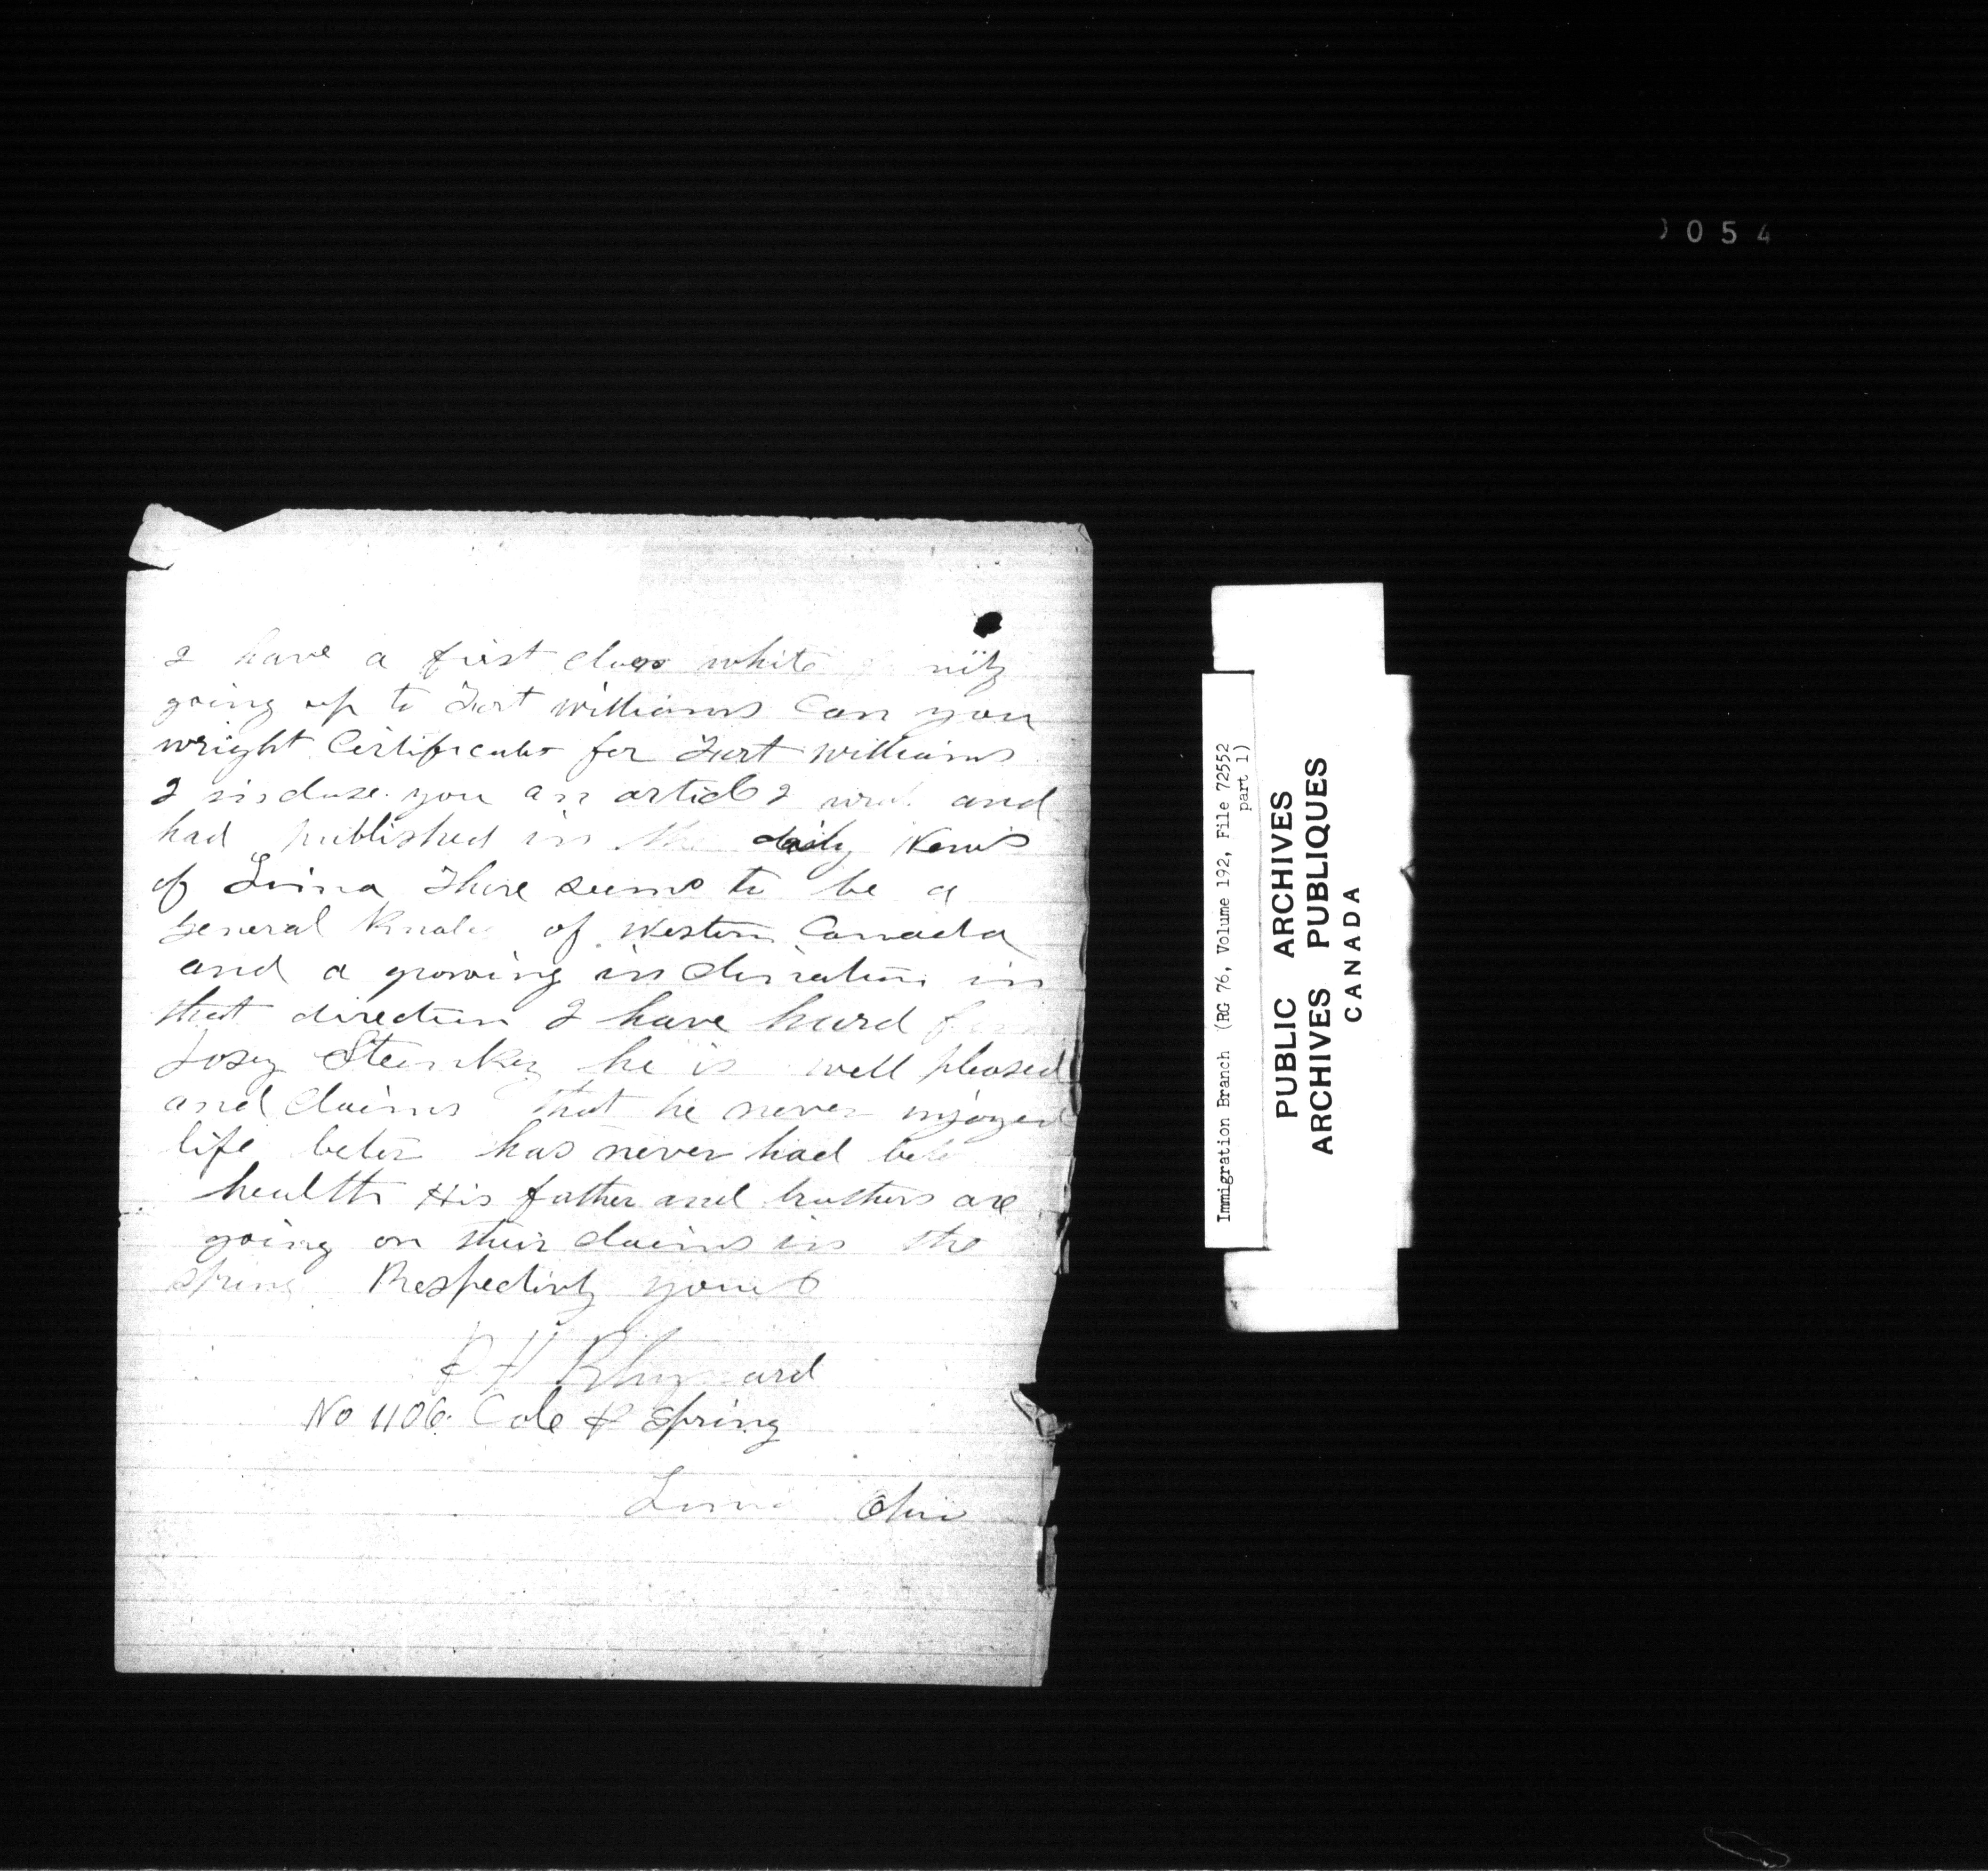 I have a first class white
going up to Fort Williams Can you
wright Certificates for Fort Williams
I inclose you an article I and
had published in the daily News
of Lima There seems to be a
general of Western Canada
and a growing inclination in
that direction I have heard
Steinkey he is well pleased
and claims that he never injoyed
life beter has never had
health His father and brothers are
going on their claims in the
spring Respectively yours
No 1106 Cole & Spring
Lima Ohio
054
Immigration Branch (RG 76, Volume 192, File 72552
part 1)
PUBLIC ARCHIVES
ARCHIVES PUBLIQUES
CANADA